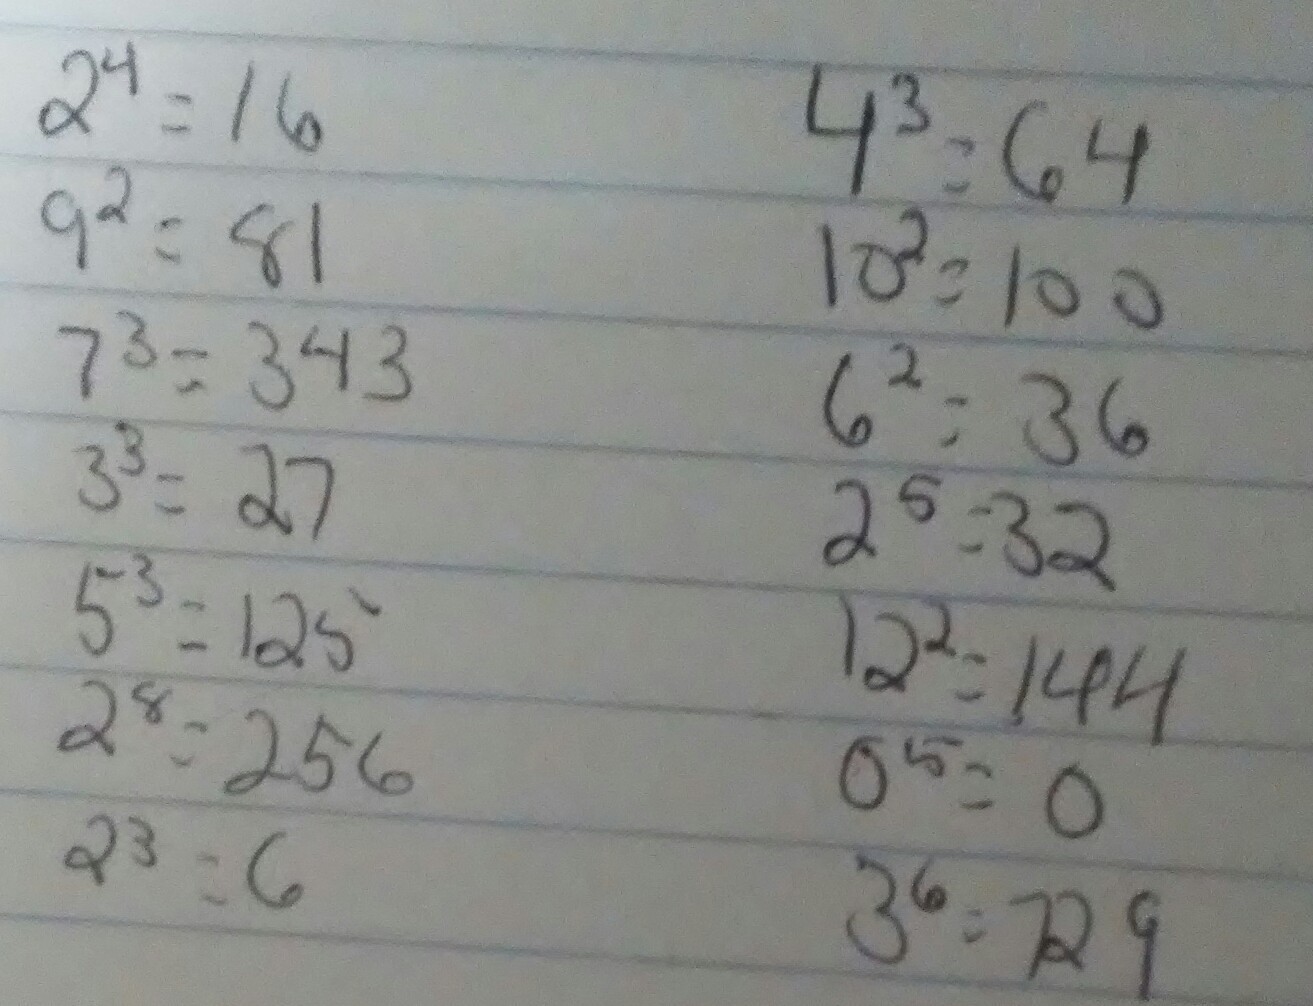 2⁴ = 16
9² = 81
7³ = 343
3³ = 27
5³ = 125
2⁸ = 256
2³ = 6
4³ = 64
10² = 100
6² = 36
2⁵ = 32
12² = 144
0⁵ = 0
3⁶ = 729